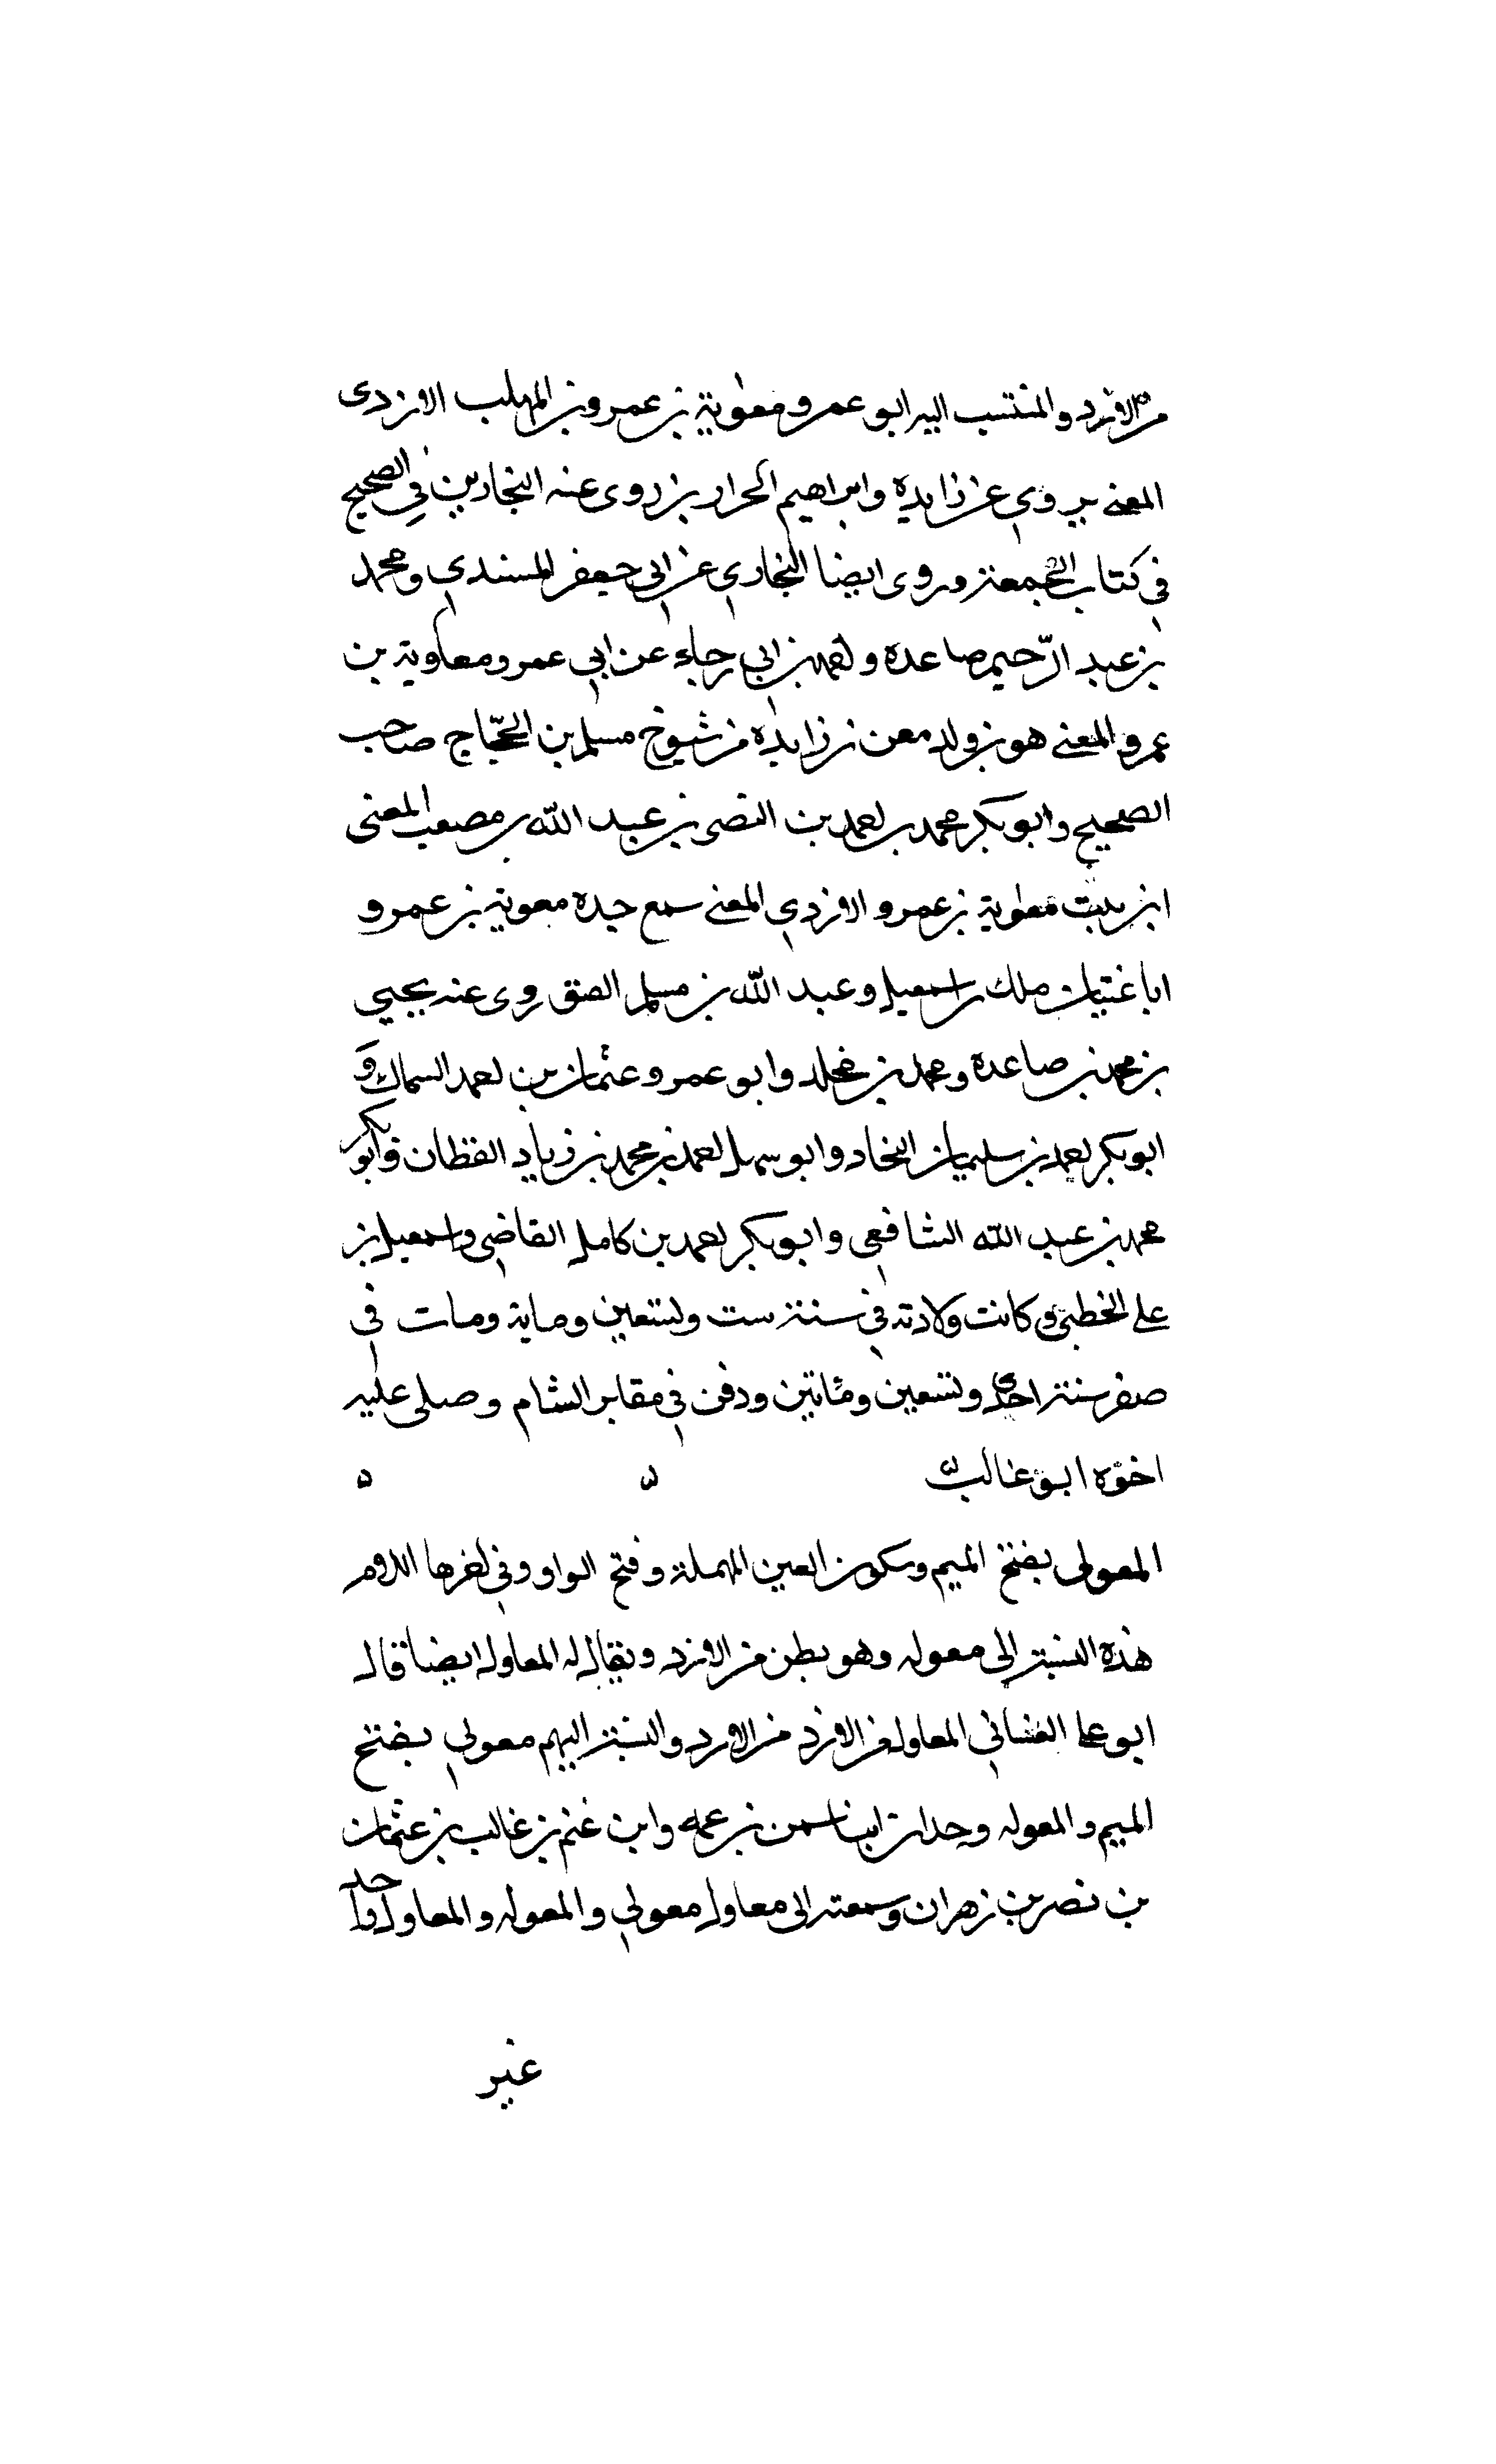 من الازد والمنتسب اليه ابو عمرو معوية بن عمرو بن المهلب الازدى
المعنى يروى عن زايدة وابراهيم الحرار بن روى عنه البخارين فى الصحيح
فى كتاب الجمعة وروى ايضا البخارى عن ابى جعفر المسندى ومحمد
بن عبد الرّحيم صاعده واحمد بن ابى رجاء عن ابى عمرو معاوية بن
عمرو المعنى هو بن ولد معن بن زايدة من شيوخ مسلم بن الحجّاج صاحب
الصحيح وابو بكر محمد بن احمد بن النضر بن عبد الله بن مصعب المعنى
ابن بنت معوية بن عمرو الازدى المعنى سمع جده معوية بن عمرو
ابا غسان ملك بن اسمعيل وعبد الله بن مسلم روى عنه يحيى
بن محمد بن صاعدة ومحمد بن مخلد وابو عمرو عثمان بن احمد السماك و
ابو بكر احمد بن سليمان النجاد وابو سهل احمد بن محمد بن زياد القطان وابو بكر
محمد بن عبد الله الشافعى وابو بكر احمد بن كامل القاضى واسمعيل بن
على الخطبى وكانت ولادته فى سنة ست وتسعين وماية ومات فى
صفر سنة احدى وتسعين ومائتين ودفن فى مقابر الشام وصلى عليه
اخوه ابو غالب
المعولى بفتح الميم وسكون العين المهملة وفتح الواو وفى اخرها اللام
هذه النسبة الى معوله وهو بطن من الازد ويقال له المعاول ايضا قال
ابو على الغسانى المعاول من الازد من الازد والنسبة اليهم معولى بفتح
الميم والمعوله وحدان ابنا شمس بن عمرو ابن غنم بن غالب بن عثمان
بن نصر بن زهران وسمعته الى معاول معولى والمعوله والمعاول واحد
غير